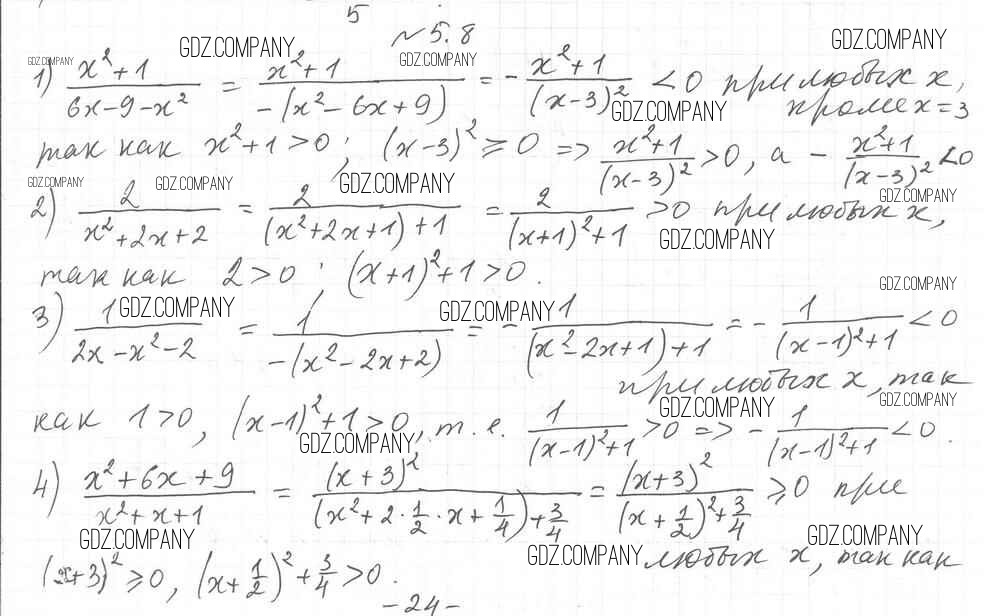 5
№5.8
GDZ.COMPANY GDZ.COMPANY GDZ.COMPANY GDZ.COMPANY
1) (x²+1)/(6x-9-x²) = (x²+1)/(-(x²-6x+9)) = -(x²+1)/((x-3)²) <0 при любых x,
кроме x=3
GDZ.COMPANY
так как x²+1>0; (x-3)²⩾0 => (x²+1)/((x-3)²) >0, а -(x²+1)/((x-3)²) <0
GDZ.COMPANY GDZ.COMPANY GDZ.COMPANY GDZ.COMPANY
2) 2/(x²+2x+2) = 2/((x²+2x+1)+1) = 2/((x+1)²+1) >0 при любых x,
GDZ.COMPANY
так как 2>0; (x+1)²+1>0.
GDZ.COMPANY GDZ.COMPANY GDZ.COMPANY
3) 1/(2x-x²-2) = 1/(-(x²-2x+2)) = -1/((x²-2x+1)+1) = -1/((x-1)²+1) <0
при любых x, так
GDZ.COMPANY GDZ.COMPANY
как 1>0, (x-1)²+1>0, т.е. 1/((x-1)²+1) >0 => -1/((x-1)²+1) <0.
GDZ.COMPANY
4) (x²+6x+9)/(x²+x+1) = (x+3)²/((x²+2·1/2·x+1/4)+3/4) = (x+3)²/((x+1/2)²+3/4) ⩾0 при
GDZ.COMPANY GDZ.COMPANY GDZ.COMPANY
любых x, так как
(x+3)²⩾0, (x+1/2)²+3/4>0.
-24-